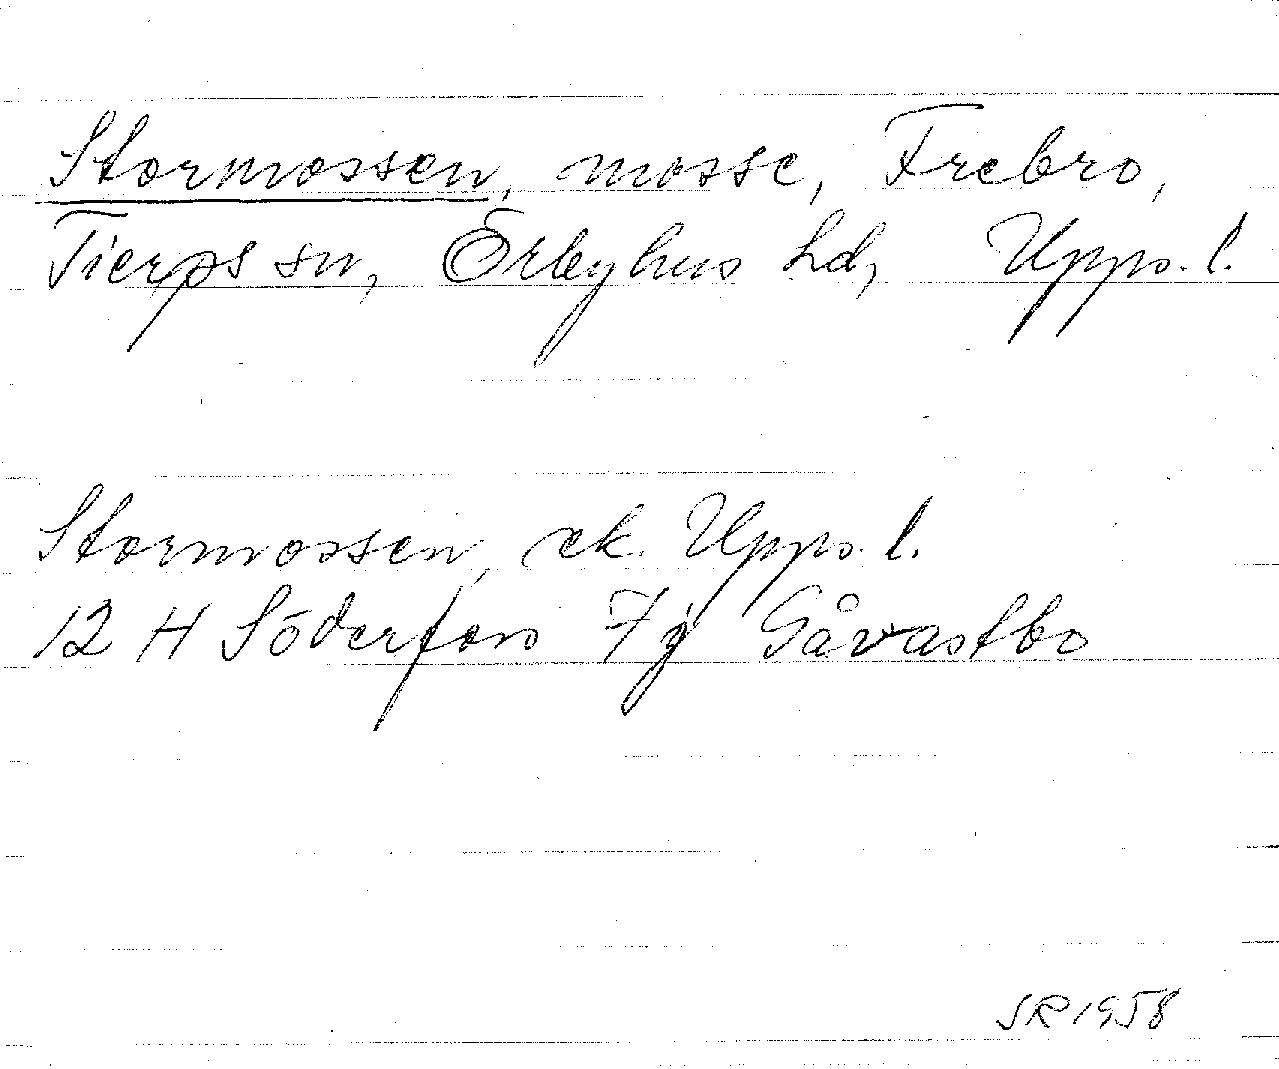 Stormossen, mosse, Frebro,
Tierps sn, Örbyhus hd, Upps. l.
Stormossen, ek. Upps. l.
12 H Söderfors 7g Gåvastbo
SR 1958